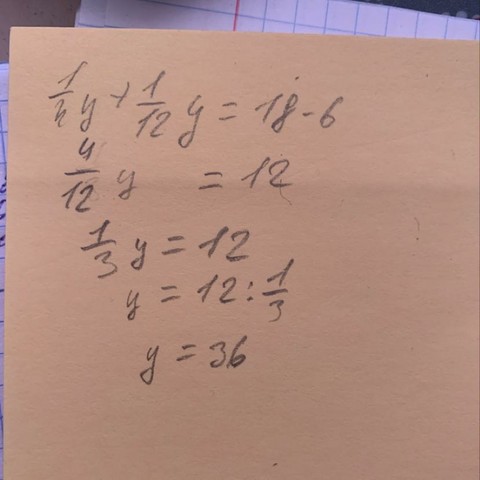 1/4 y + 1/12 y = 18 - 6
4/12 y = 12
1/3 y = 12
y = 12 : 1/3
y = 36